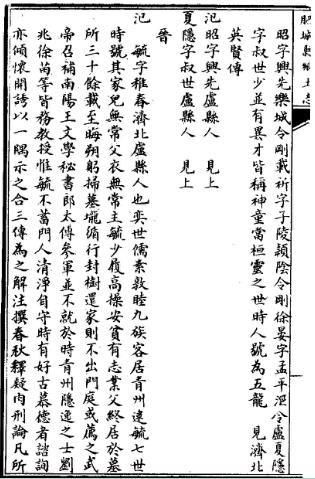 昭字興先樂城令剛戴祈字子陵潁陰令剛徐晏字孟平涇令盧夏隱
字叔世少並有異才皆稱神童當桓靈之世時人號為五龍　見濟北
英賢傳
氾昭字興先盧縣人　見上
夏隱字叔世盧縣人　見上
晉
氾　毓字稚春濟北盧縣人也奕世儒素敦睦九族客居青州逮毓七世
時號其家兒無常父衣無常主毓少履高操安貧有志業父終居於墓
所三十餘載至晦朔躬掃墓壠循行封樹還家則不出門庭或薦之武
帝召補南陽王文學秘書郎太傅參軍並不就於時青州隱逸之士劉
兆徐苗等皆務教授惟毓不蓄門人清淨自守時有好古慕德者諮詢
亦傾懷開誘以一隅示之合三傳為之解注撰春秋釋疑肉刑論凡所
肥城縣鄉土志